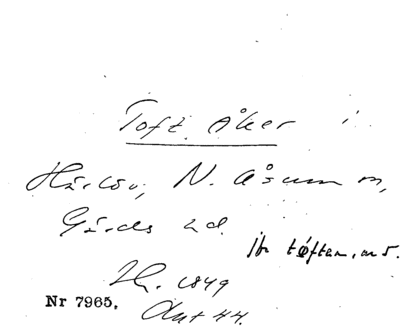 Toft åker i
Härlöv, N. Åsum sn,
Gärds hd.
tóften, m f.
Lh. 1849
Nr 7965, Ant 44.